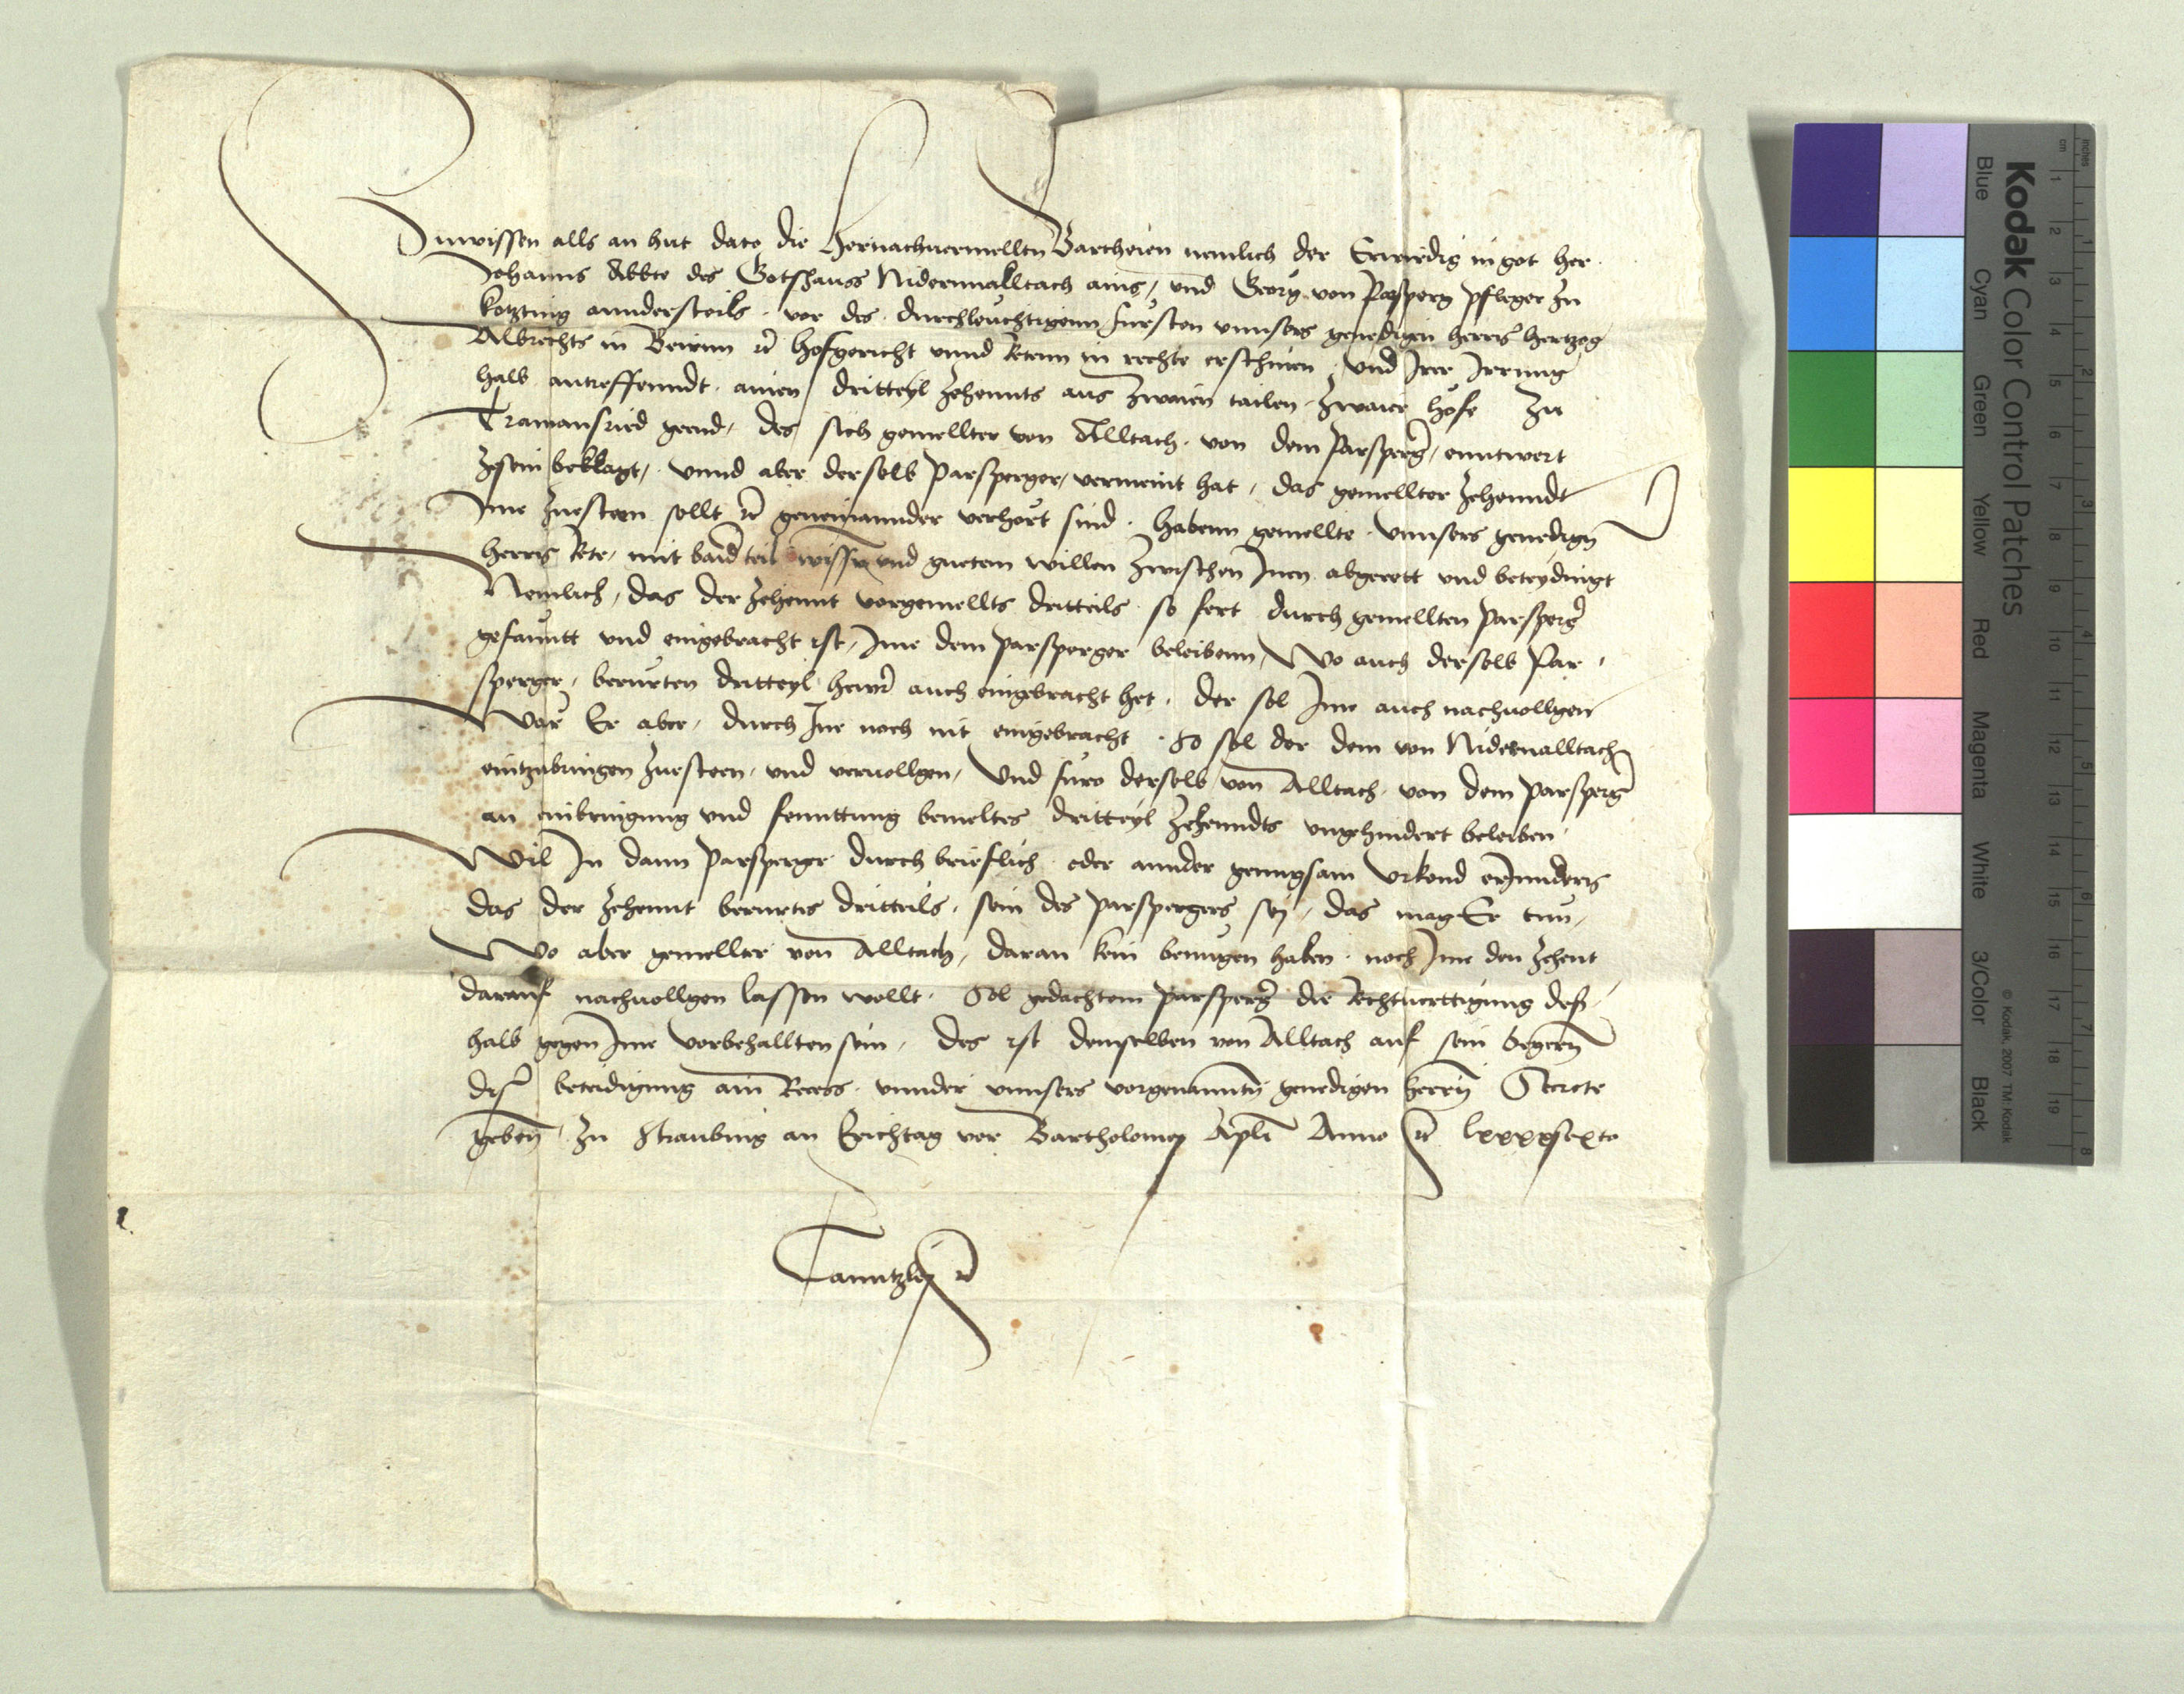 Zuwissen alls an hut dato die Hernachuermellten Partheien nemlich der Erwirdig in got her
Johanns Abbte des Gotshauss Nidernnalltach ains, und Georg von Parsperg pfleger zu
kotzting anndersteils. vor des durchleuchtigenn fursten unnsers genedigen herrn hertzog
Albrechts in Beirnn etc hofgericht unnd Retenn in rechte erschinen. und Irer Irrung
halb antreffenndt. ainen dritteyl zehennts aus zwaien tailen. zwaier hofe zu
Tramansried geend, des sich gemellter von Alltach. von dem Parsperger, enntwert
zesein beklagt, unnd aber derselb Parsperger, vermeint hat, das gemellter zehenndt
Ime zuesteen sollt etc geneinannder verhort sind. habenn gemellte. unnsers genedign
herrn Rete, mit baider teil wissen und guetem willen zwischen Inen abgerett und beteydingt
Nemlich, das der zehennt vorgemellts dritteils so fert durch gemellten Parsperger
gefanntt und eingebracht ist, Ime dem Parsperger beleibenn, Wo auch derselb Par-
sperger, berurten dritteyl hewr auch eingebracht het. der sol Ime auch nachuollgen
Wär Er aber, durch Ine noch nit eingebracht. So sol der dem von Nidernalltach
eintzubringen zuesteen, und veruollgen, Und furo derselb von Alltach. von dem Parsperger
an einbringung und fenntung bemeltes dritteyl zehenndts ungehindert beleiben.
Wil In dann Parsperger durch brieflich oder annder genugsam Urkond erInndern
das der zehennt berurts dritteils, sein des Parspergers sey, das mag Er tun,
Wo aber gemellter von Alltach, daran kein benugen haben. noch Ime den zehent
darauf nachuollgen lassen wollt. Sol gedachtem Parsperger die Rechtuerttigung deß-
halb gegen Ime vorbehallten sein. des ist demselben von Alltach auf sein begern
diser beteidigung ain Recess. unnder unnsers vorgenannten genedigen herrn Secrete
geben, zu Straubing an Erichtag vor Bartholomey Apli Anno etc lxxxxsexto
Canntzley etc
Kodak Color Control Patches
Blue Cyan Green Yellow Red Magenta White 3/Color Black
© Kodak, 2007 TM: Kodak
cm 1 2 3 4 5 6 7 8 9 10 11 12 13 14 15 16 17 18 19
inches 1 2 3 4 5 6 7 8